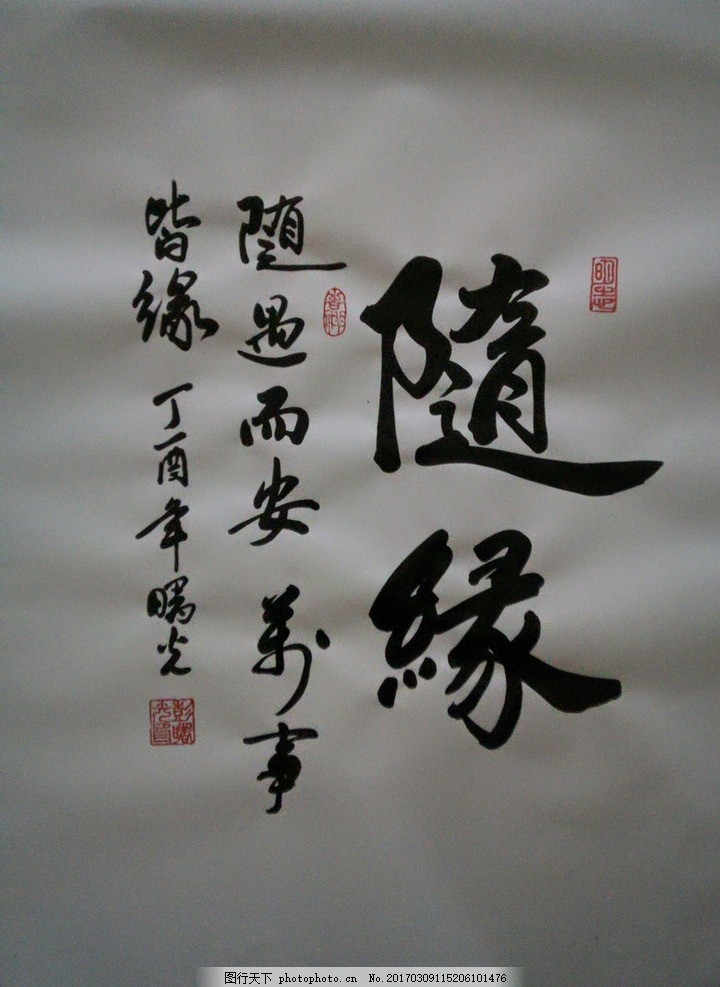 隨緣
隨遇而安 萬事
皆緣 丁酉年 曙光
图行天下 photophoto.cn No.20170309115206101476